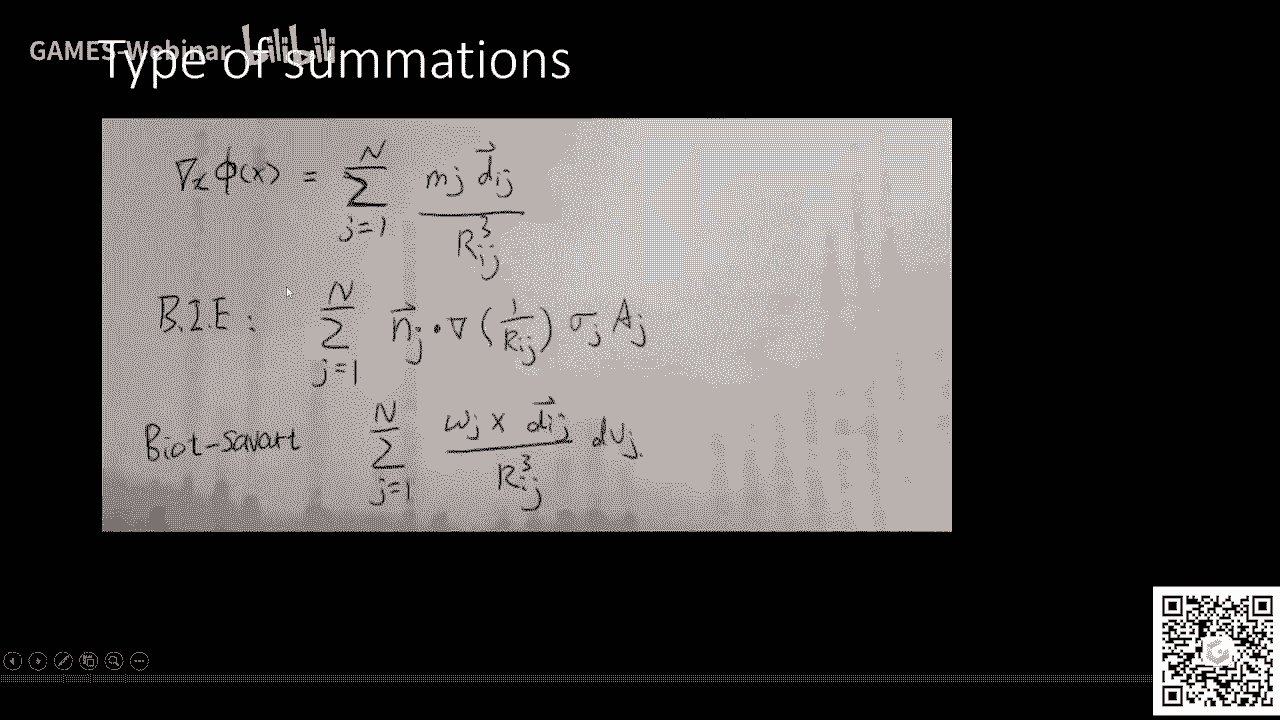 GAMES-Webinar bilibili
Type of summations
∇ₓ ϕ(x) = ∑_{j=1}^{N} \frac{m_j \vec{d}_{ij}}{R_{ij}^3}
B.I.E : ∑_{j=1}^{N} \vec{n}_j · ∇ (\frac{1}{R_{ij}}) σ_j A_j
Biot-savart ∑_{j=1}^{N} \frac{ω_j × \vec{d}_{ij}}{R_{ij}^3} dv_j.